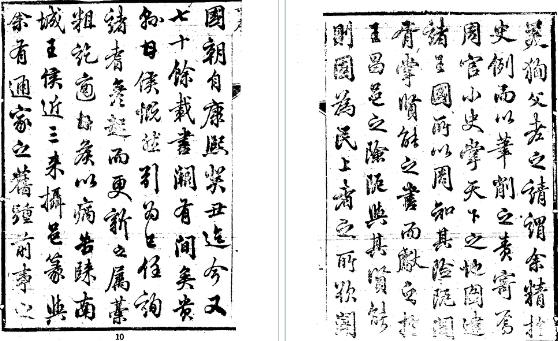 國朝自康熙癸丑迄今又
七十餘載書闕有間矣貴
侯慨然引為己任詢
諸耆彥起而更新之屬藁
粗訖適侯以病告南
城王侯近三来攝邑篆與
余有通家之舊踵前事之
義狥父老之請謂余精於
史例而以筆削之責寄焉
周官小史掌天下之地圖達
諸王國所以周知其險阨閭
胥掌賢能之書而獻之於
王昌邑之險阨與其賢能
則固為民上者之所欲聞
10